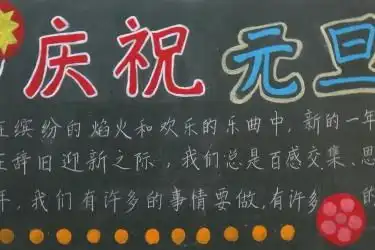 庆祝元旦
在缤纷的焰火和欢乐的乐曲中，新的一年
在辞旧迎新之际，我们总是百感交集、思
年，我们有许多的事情要做，有许多 的